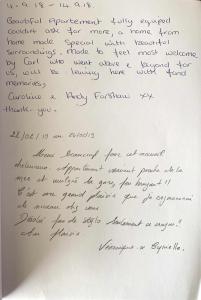 11.9.18 - 14.9.18.
Beautiful Apartment fully equiped
couldnt ask for more, a home from
home made special with beautiful
surroundings. Made to feel most welcome
by Carl who went above & beyond for
us, will be leaving here with fond
memories,
Caroline & Andy Farshaw xx
thank-you.
22/02/19 au 24/02/19
Merci beaucoup pour cet accueil
chaleureux. Appartement vraiment proche de la
mer et malgré la gare, pas bruyant !!
C'est avec grand plaisir que je
de niveau chez vous
Désolé pas de stylo seulement un crayon!
Au plaisir
Véronique et